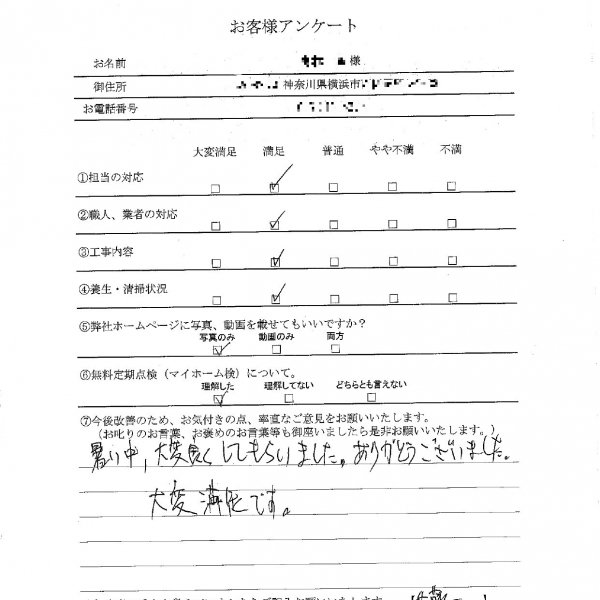 お客様アンケート
お名前 様
御住所 神奈川県横浜市
お電話番号
大変満足 満足 普通 やや不満 不満
①担当の対応
②職人、業者の対応
③工事内容
④養生・清掃状況
⑤弊社ホームページに写真、動画を載せてもいいですか?
写真のみ 動画のみ 両方
⑥無料定期点検（マイホーム検）について。
理解した 理解してない どちらとも言えない
⑦今後改善のため、お気付きの点、率直なご意見をお願いいたします。
（お叱りのお言葉、お褒めのお言葉等も御座いましたら是非お願いいたします。）
暑い中，大変良くしてもらいました。ありがとうございました。
大変満足です。